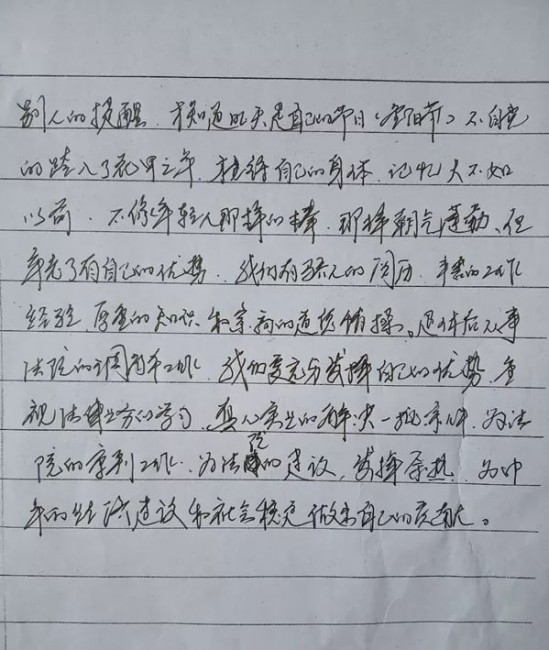 别人的提醒，才知道昨天是自己的节日《重阳节》不自觉
的踏入了花甲之年，觉得自己的身体、记忆大不如
以前，不像年轻人那样的棒，那样朝气蓬勃，但
年老了有自己的优势，我们有骄人的阅历，丰富的工作
经验，厚重的知识和崇高的道德情操。退休后从事
法院的调解工作，我们要充分发挥自己的优势，重
视法律业务的学习，真心实意的解决一批案件，为法
院的审判工作，为法院的建设，发挥余热，为中
年的经济建设和社会稳定做出自己的贡献。